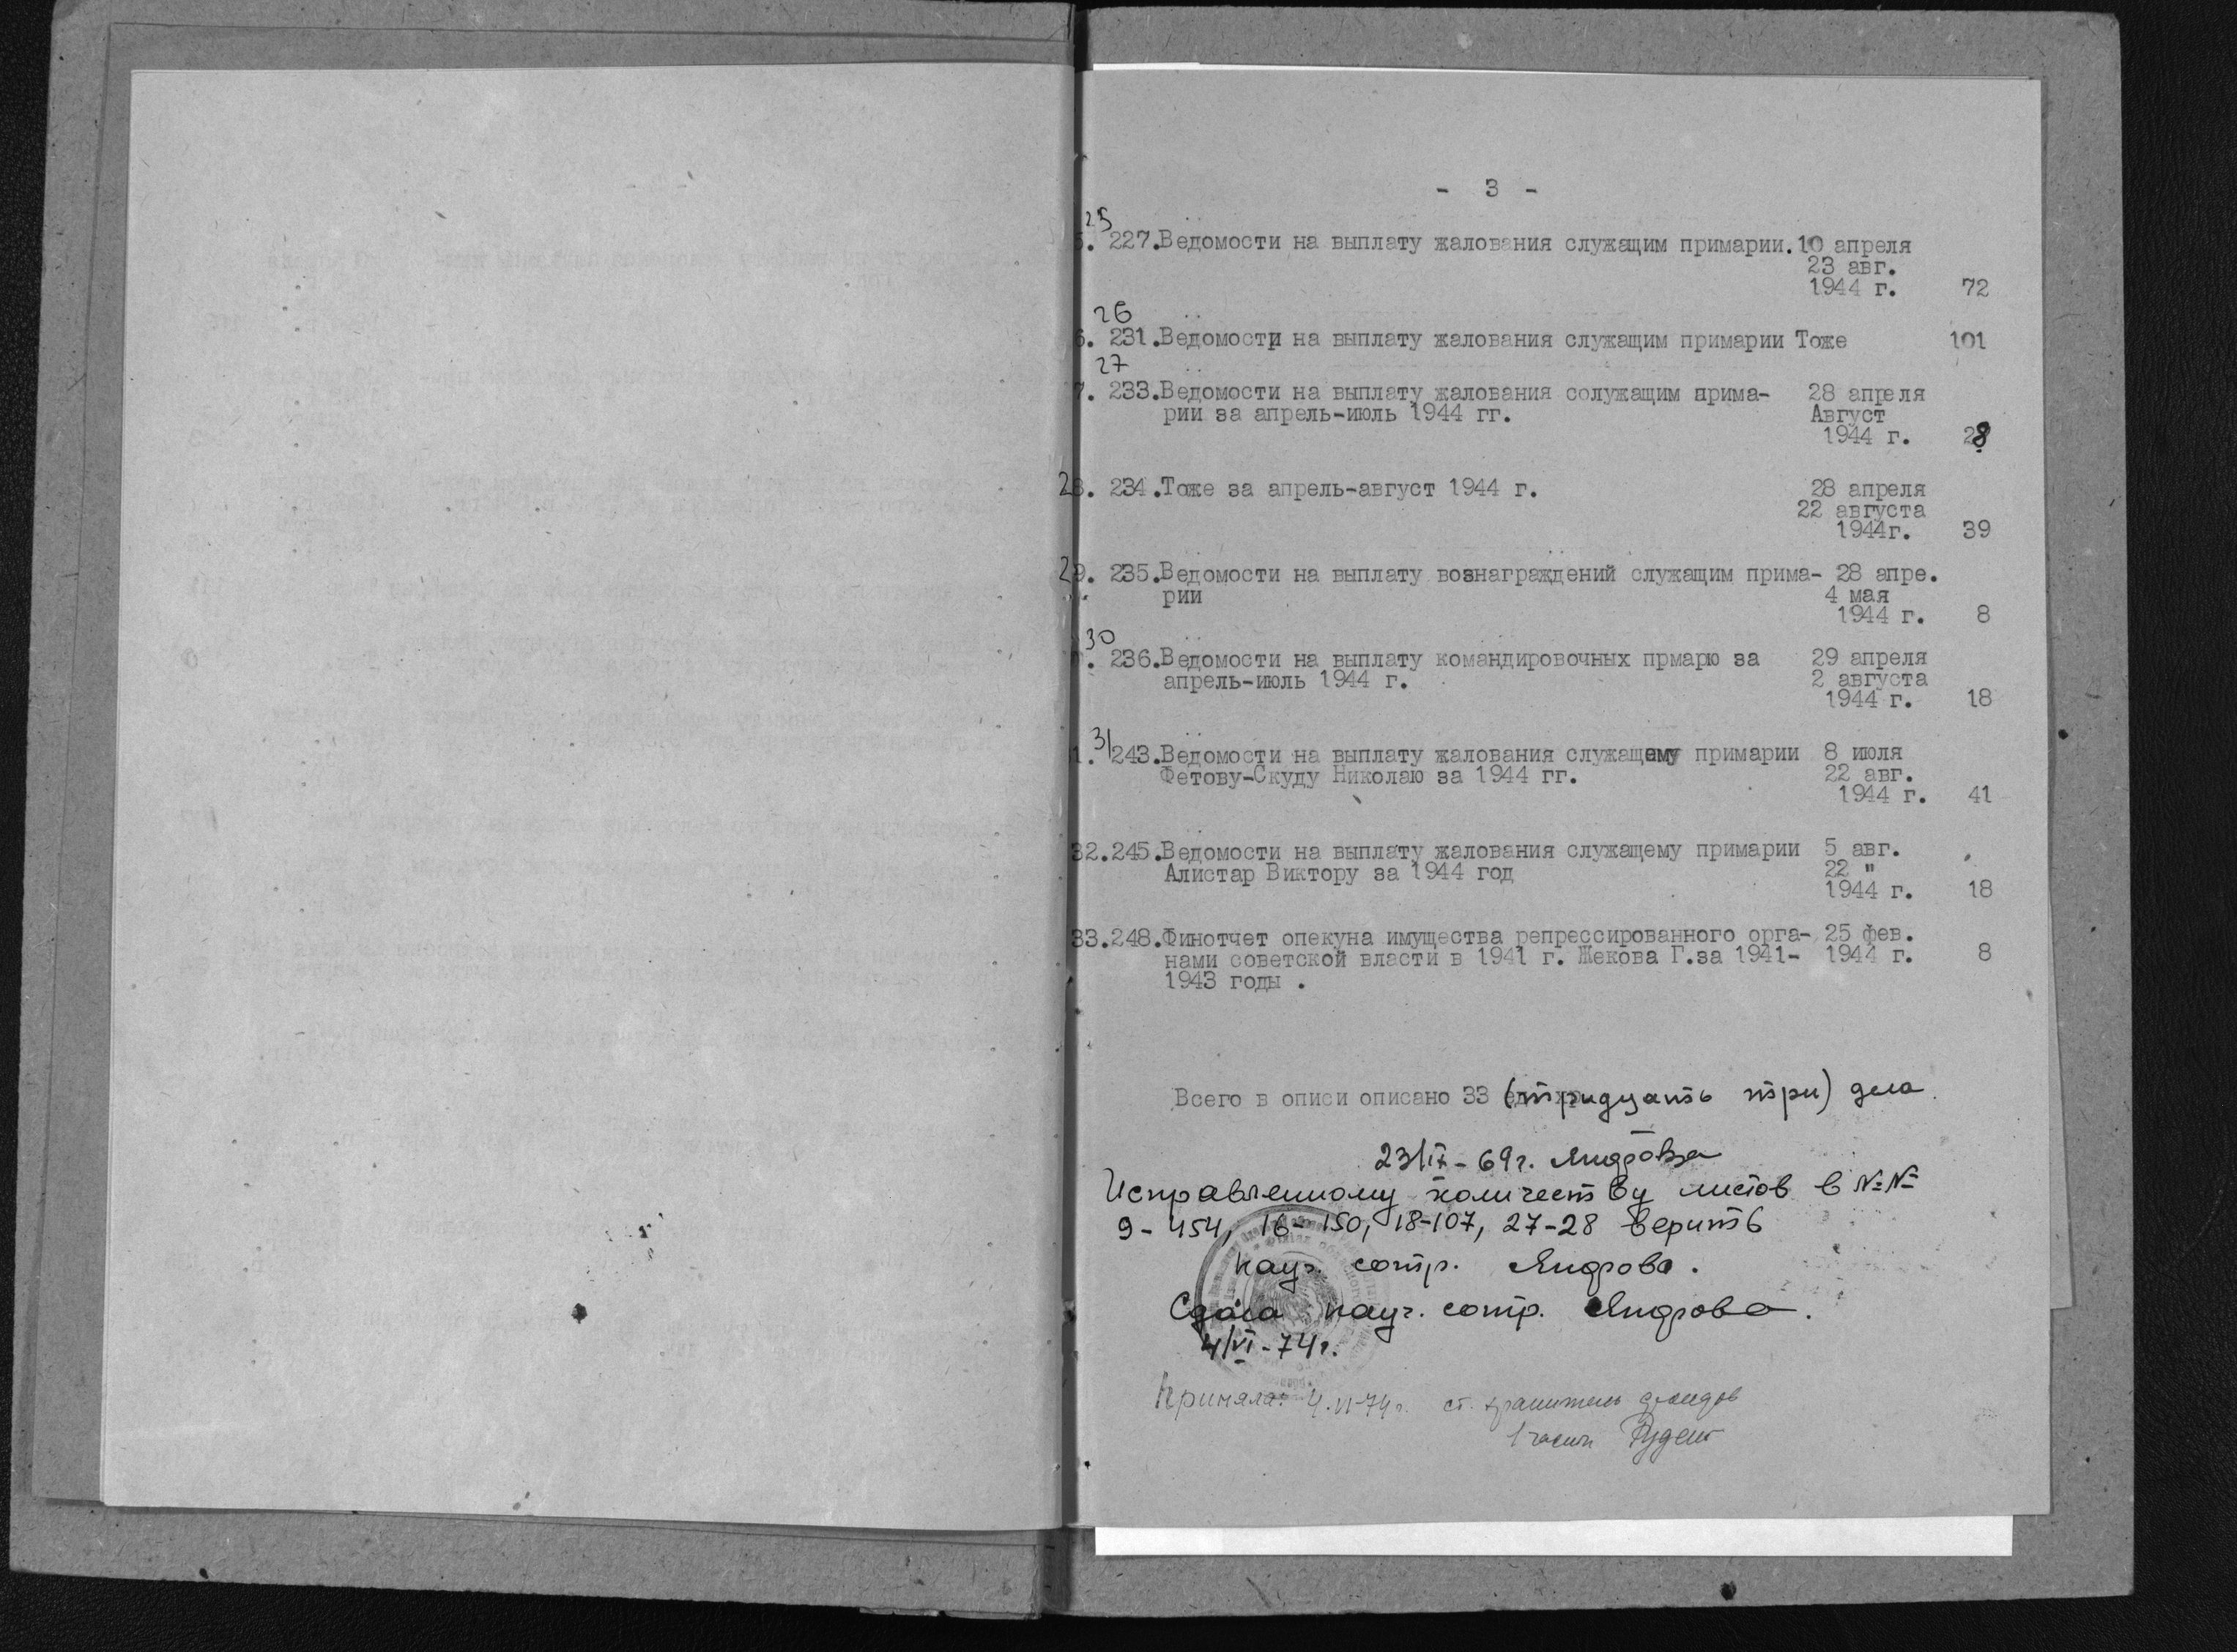 - 3 -
25
5. 227.Ведомости на выплату жалования служащим примарии. 10 апреля
23 авг.
1944 г. 72
26
6. 231.Ведомости на выплату жалования служащим примарии Тоже 101
27
7. 233.Ведомости на выплату жалования солужащим прима- 28 апреля
рии за апрель-июль 1944 гг. Август
1944 г. 28
28. 234.Тоже за апрель-август 1944 г. 28 апреля
22 августа
1944г. 39
29. 235.Ведомости на выплату вознаграждений служащим прима- 28 апре.
рии 4 мая
1944 г. 8
30
236.Ведомости на выплату командировочных прмарю за 29 апреля
апрель-июль 1944 г. 2 августа
1944 г. 18
31
1. 243.Ведомости на выплату жалования служащему примарии 8 июля
Фетову-Скуду Николаю за 1944 гг. 22 авг.
1944 г. 41
32.245.Ведомости на выплату жалования служащему примарии 5 авг.
Алистар Виктору за 1944 год 22 "
1944 г. 18
33.248.Финотчет опекуна имущества репрессированного орга- 25 фев.
нами советской власти в 1941 г. Жекова Г.за 1941- 1944 г. 8
1943 годы .
Всего в описи описано 33 (тридцать три) дела.
23/IX-69г.
Исправленному количеству листов в №№
9-454, 16-150, 18-107, 27-28 верить
науч. сотр.
Сдала науч. сотр.
4/VI-74г.
Приняла: 4.VI-74г. ст. хранитель фондов